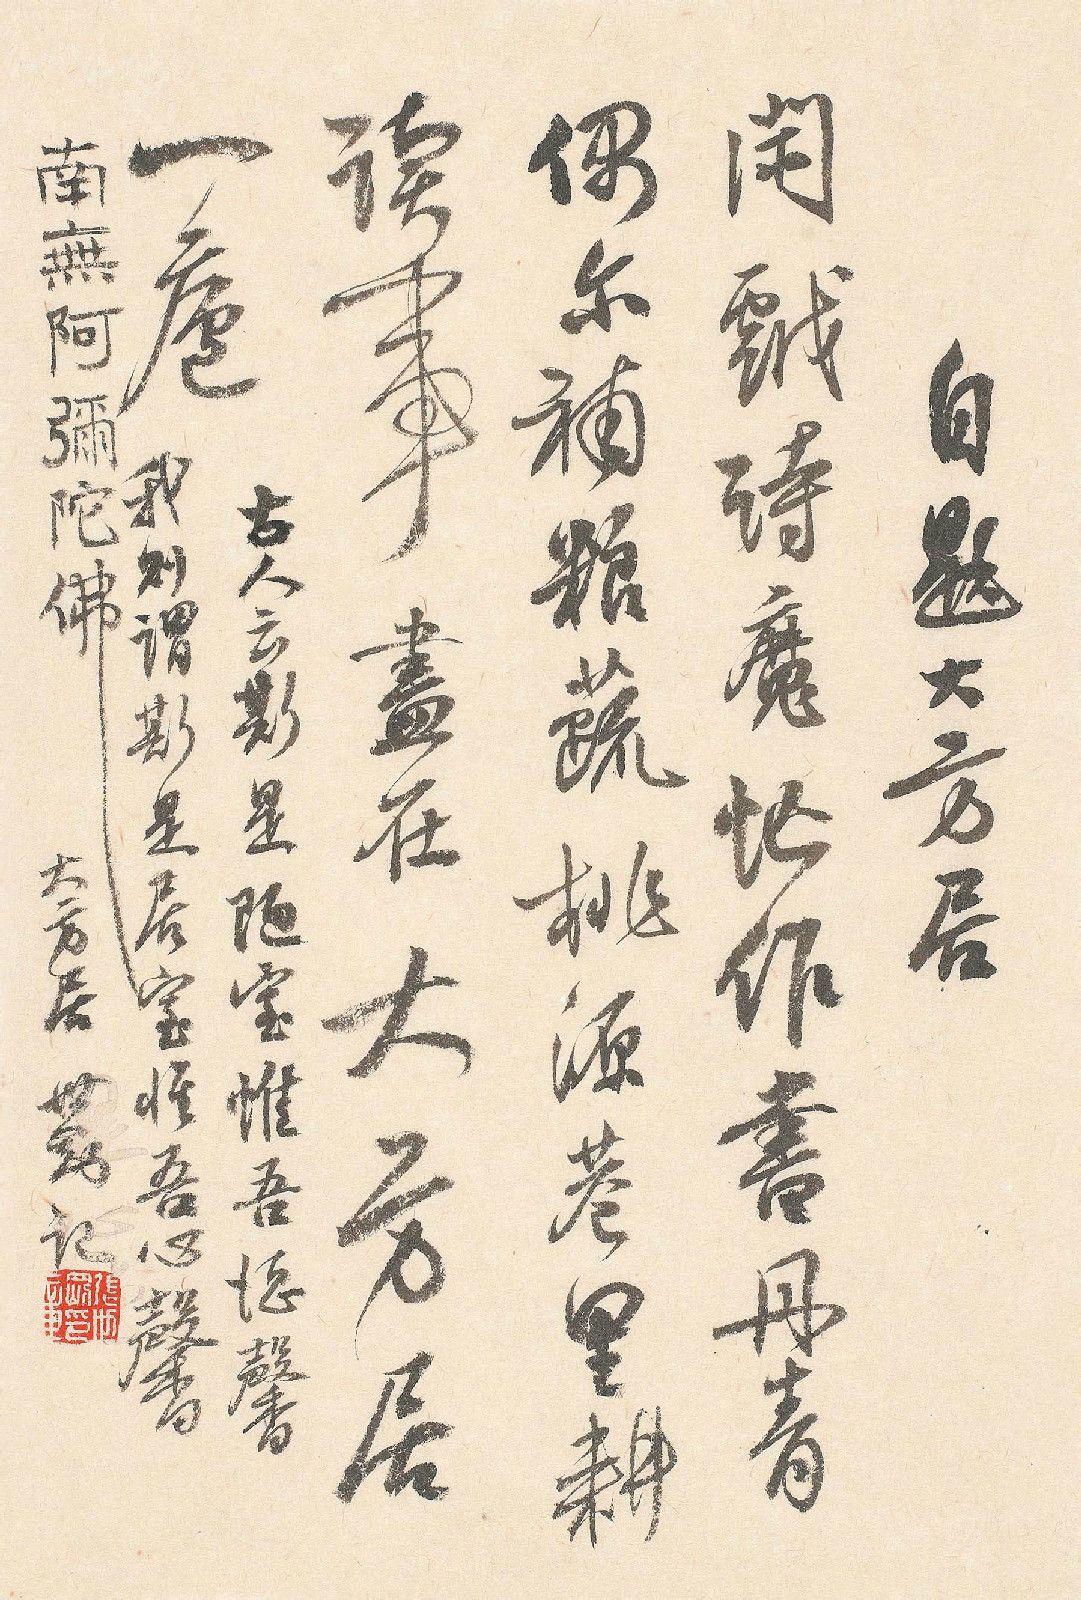 自题大方居
闲戏诗魔忙作书丹青
偶尔补粮蔬桃源巷里耕
读事尽在大方居
一庐
古人云斯是陋室惟吾德馨
我则谓斯是居室惟吾心馨
南無阿彌陀佛
大方居 記